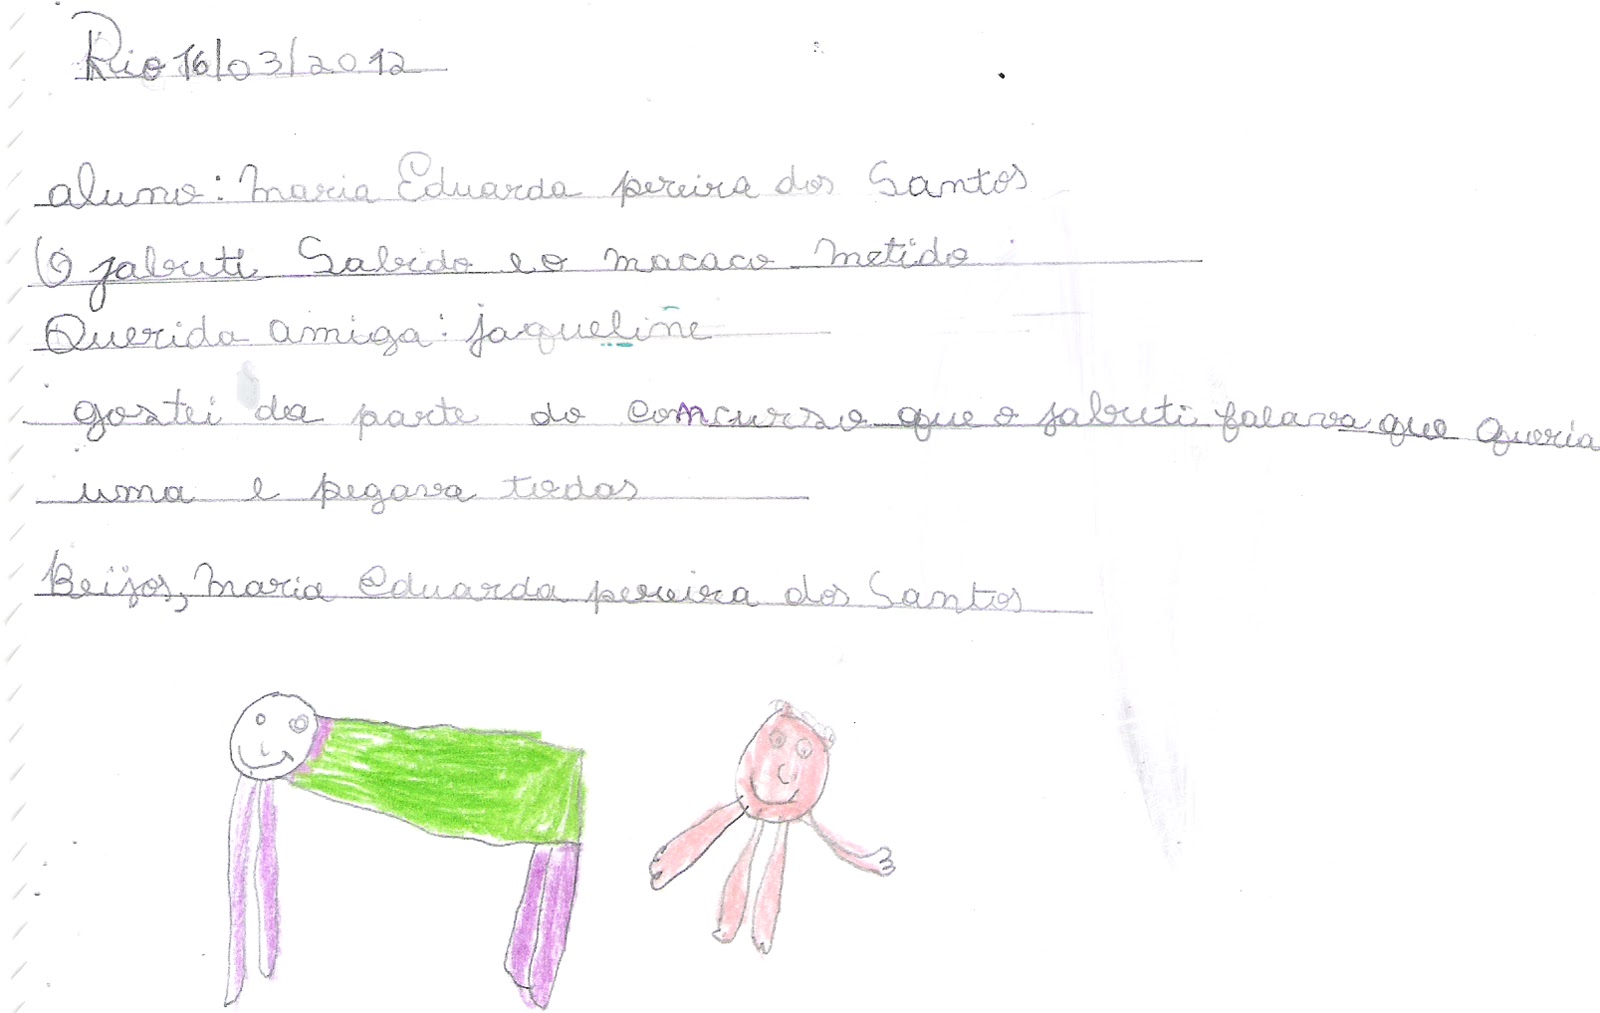 Rio 16/03/2012
aluno: Maria Eduarda pereira dos Santos
O jabuti Sabido e o macaco metido
Querida amiga: jaqueline
gostei da parte do comcurso que o jabuti falava que queria
uma e pegava todas
Beijos, Maria Eduarda pereira dos Santos